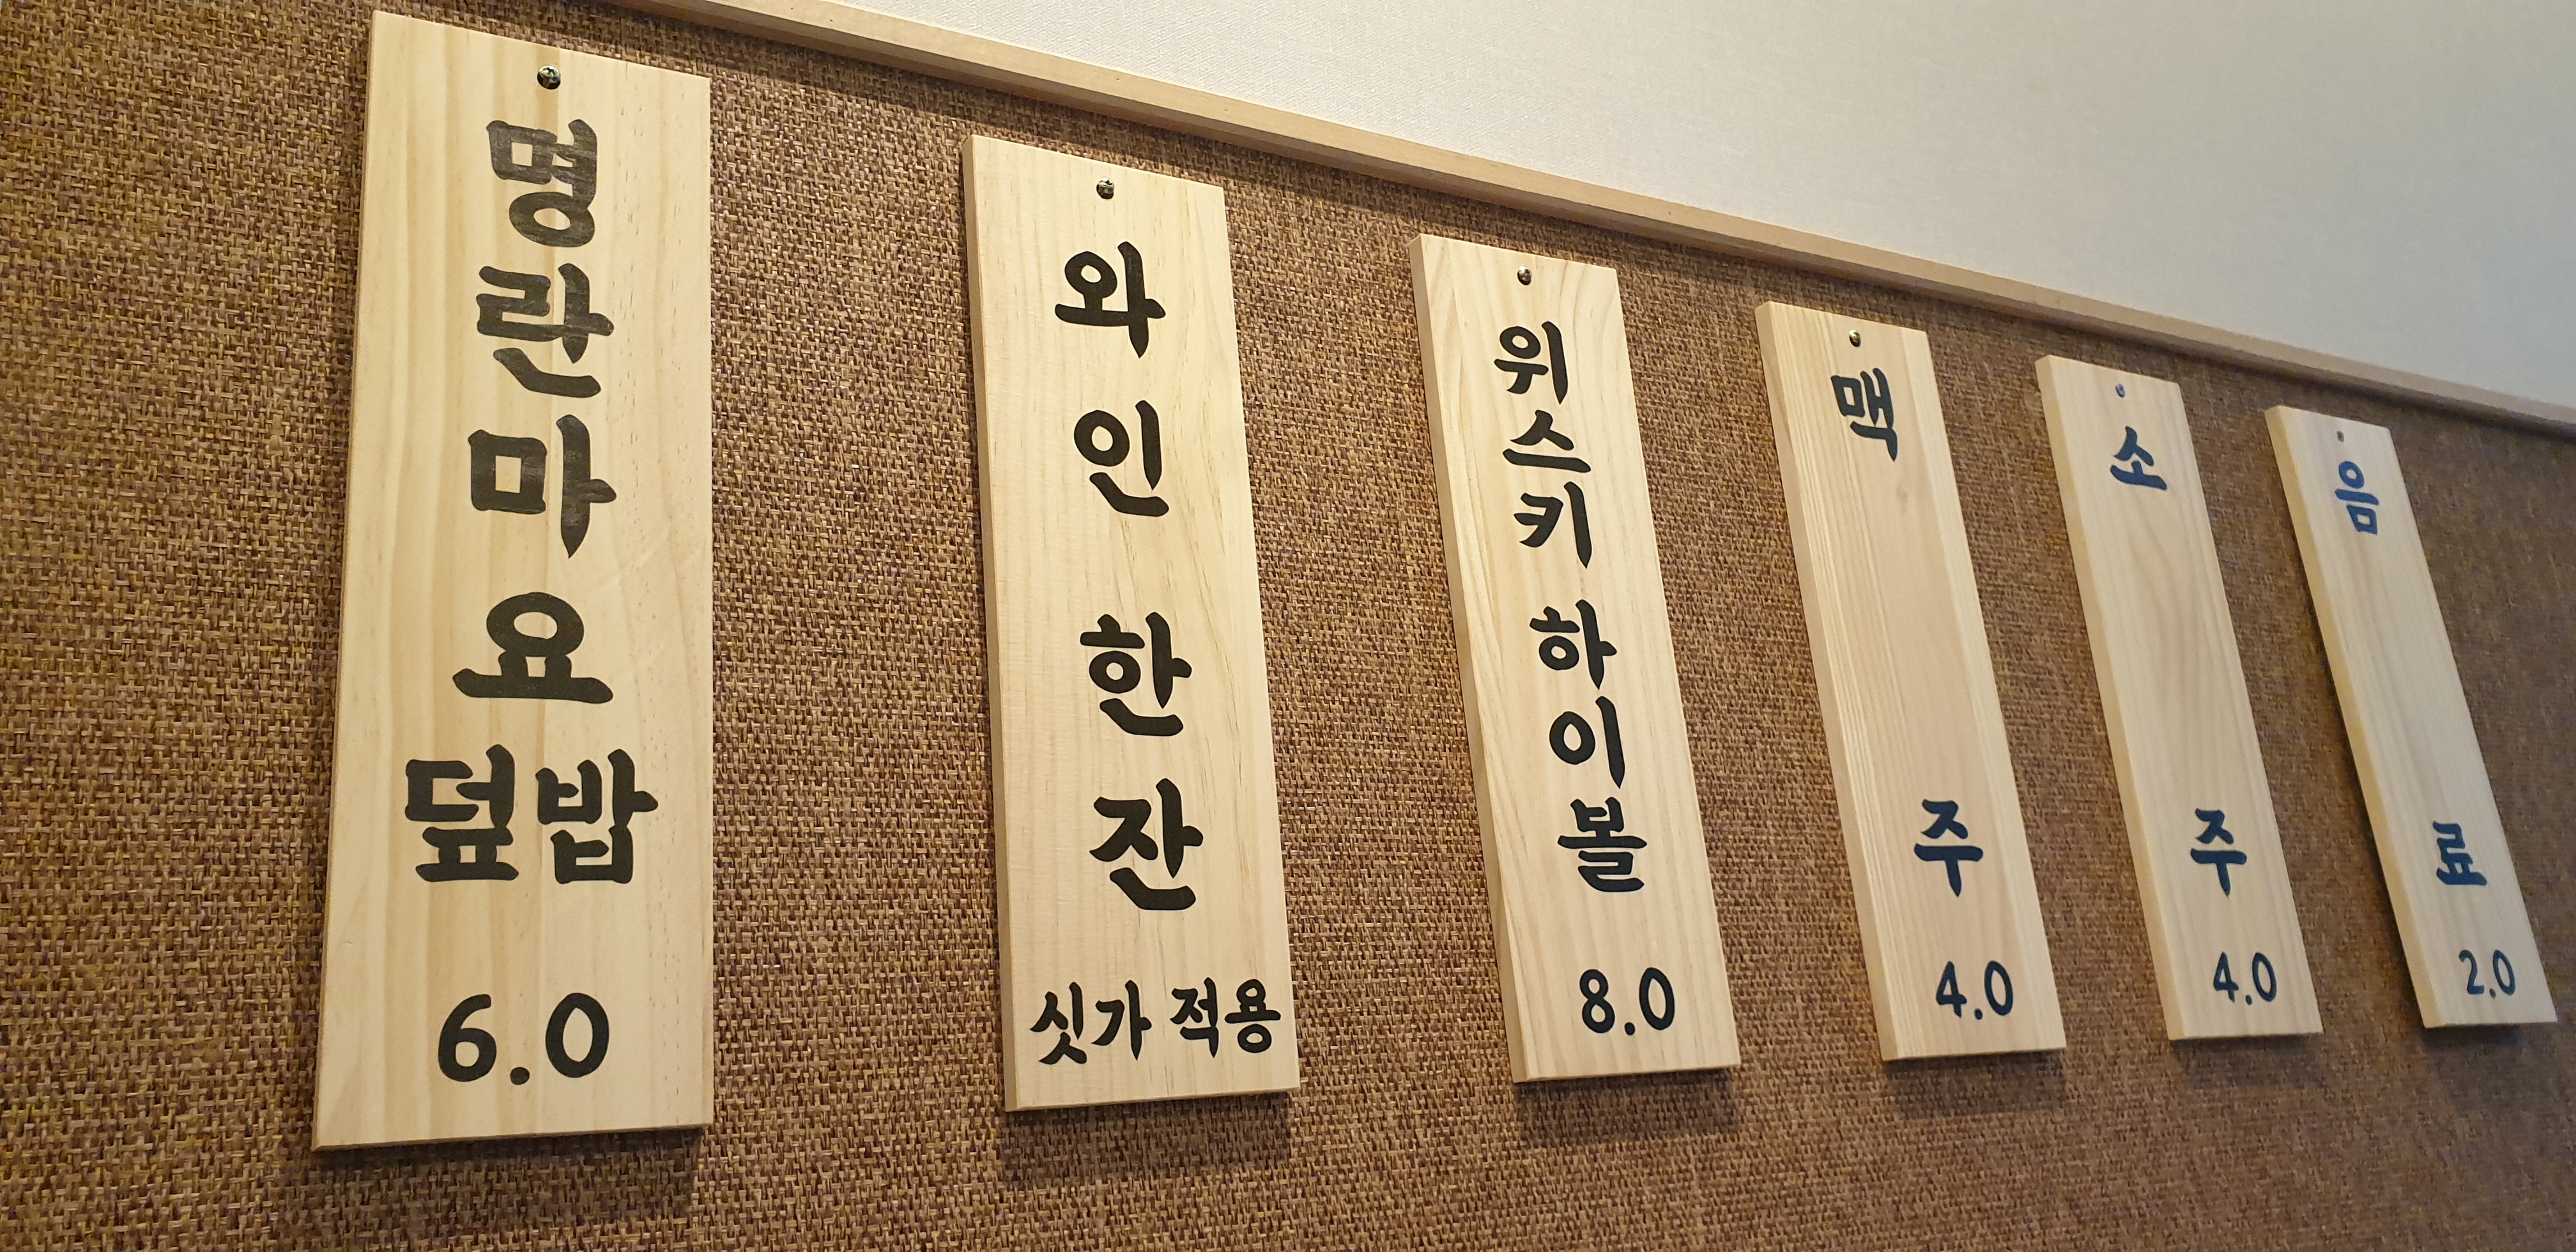 명란마요
덮밥
6.0
와인 한 잔
싯가 적용
위스키 하이볼
8.0
맥주
4.0
소주
4.0
음료
2.0